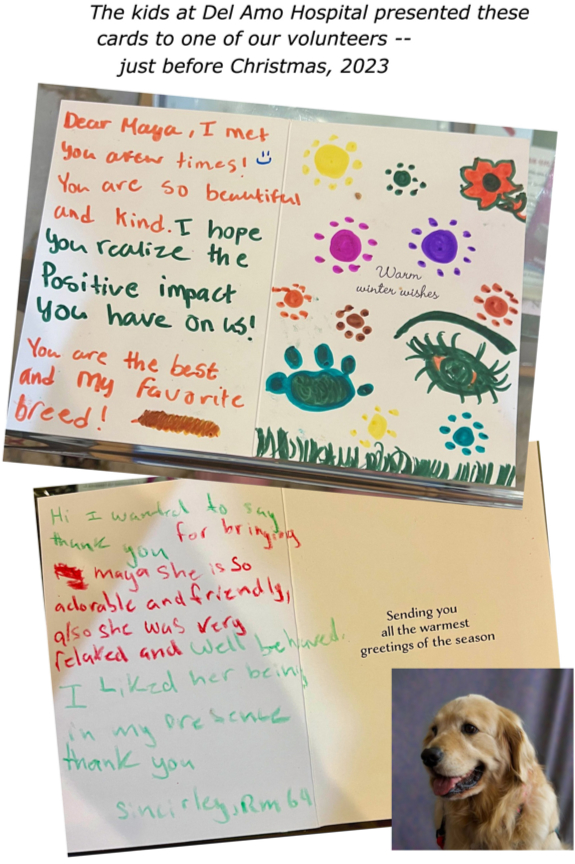 The kids at Del Amo Hospital presented these
cards to one of our volunteers --
just before Christmas, 2023
Dear Maya, I met
you afew times!
You are so beautiful
and kind. I hope
you realize the
Positive impact
You have on us!
You are the best
and my favorite
breed!
Warm
winter wishes
Hi I wanted to say
thank you for bringing
maya she is so
adorable and friendly,
also she was very
relaxed and well behaved.
I Liked her being
in my presence
thank you
Sincirley, Rm 64
Sending you
all the warmest
greetings of the season